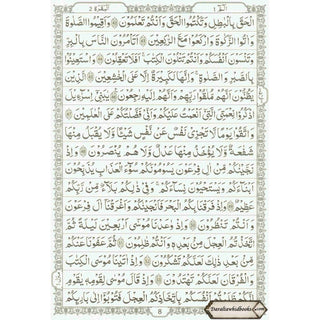 الٓمّٓ ١
اَلْبَقَرَة ٢
الْحَقَّ بِالْبَاطِلِ وَتَكْتُمُوا الْحَقَّ وَاَنْتُمْ تَعْلَمُوْنَ ۝ وَاَقِيْمُوا الصَّلٰوةَ
وَاٰتُوا الزَّكٰوةَ وَارْكَعُوْا مَعَ الرّٰكِعِيْنَ ۝ اَتَاْمُرُوْنَ النَّاسَ بِالْبِرِّ
وَتَنْسَوْنَ اَنْفُسَكُمْ وَاَنْتُمْ تَتْلُوْنَ الْكِتٰبَ اَفَلَا تَعْقِلُوْنَ ۝ وَاسْتَعِيْنُوْا
بِالصَّبْرِ وَالصَّلٰوةِ وَاِنَّهَا لَكَبِيْرَةٌ اِلَّا عَلَى الْخٰشِعِيْنَ ۝ الَّذِيْنَ
يَظُنُّوْنَ اَنَّهُمْ مُّلٰقُوْا رَبِّهِمْ وَاَنَّهُمْ اِلَيْهِ رٰجِعُوْنَ ۝ يٰبَنِيْٓ اِسْرَآءِيْلَ
اذْكُرُوْا نِعْمَتِيَ الَّتِيْٓ اَنْعَمْتُ عَلَيْكُمْ وَاَنِّيْ فَضَّلْتُكُمْ عَلَى الْعٰلَمِيْنَ ۝
وَاتَّقُوْا يَوْمًا لَّا تَجْزِيْ نَفْسٌ عَنْ نَّفْسٍ شَيْـًٔا وَّلَا يُقْبَلُ مِنْهَا
شَفَاعَةٌ وَّلَا يُؤْخَذُ مِنْهَا عَدْلٌ وَّلَا هُمْ يُنْصَرُوْنَ ۝ وَاِذْ
نَجَّيْنٰكُمْ مِّنْ اٰلِ فِرْعَوْنَ يَسُوْمُوْنَكُمْ سُوْٓءَ الْعَذَابِ يُذَبِّحُوْنَ
اَبْنَآءَكُمْ وَيَسْتَحْيُوْنَ نِسَآءَكُمْ وَفِيْ ذٰلِكُمْ بَلَآءٌ مِّنْ رَّبِّكُمْ
عَظِيْمٌ ۝ وَاِذْ فَرَقْنَا بِكُمُ الْبَحْرَ فَاَنْجَيْنٰكُمْ وَاَغْرَقْنَآ اٰلَ فِرْعَوْنَ
وَاَنْتُمْ تَنْظُرُوْنَ ۝ وَاِذْ وٰعَدْنَا مُوْسٰٓى اَرْبَعِيْنَ لَيْلَةً ثُمَّ
اتَّخَذْتُمُ الْعِجْلَ مِنْۢ بَعْدِهٖ وَاَنْتُمْ ظٰلِمُوْنَ ۝ ثُمَّ عَفَوْنَا عَنْكُمْ
مِّنْۢ بَعْدِ ذٰلِكَ لَعَلَّكُمْ تَشْكُرُوْنَ ۝ وَاِذْ اٰتَيْنَا مُوْسَى الْكِتٰبَ
وَالْفُرْقَانَ لَعَلَّكُمْ تَهْتَدُوْنَ ۝ وَاِذْ قَالَ مُوْسٰى لِقَوْمِهٖ يٰقَوْمِ
اِنَّكُمْ ظَلَمْتُمْ اَنْفُسَكُمْ بِاتِّخَاذِكُمُ الْعِجْلَ فَتُوْبُوْٓا اِلٰى بَارِئِكُمْ
8